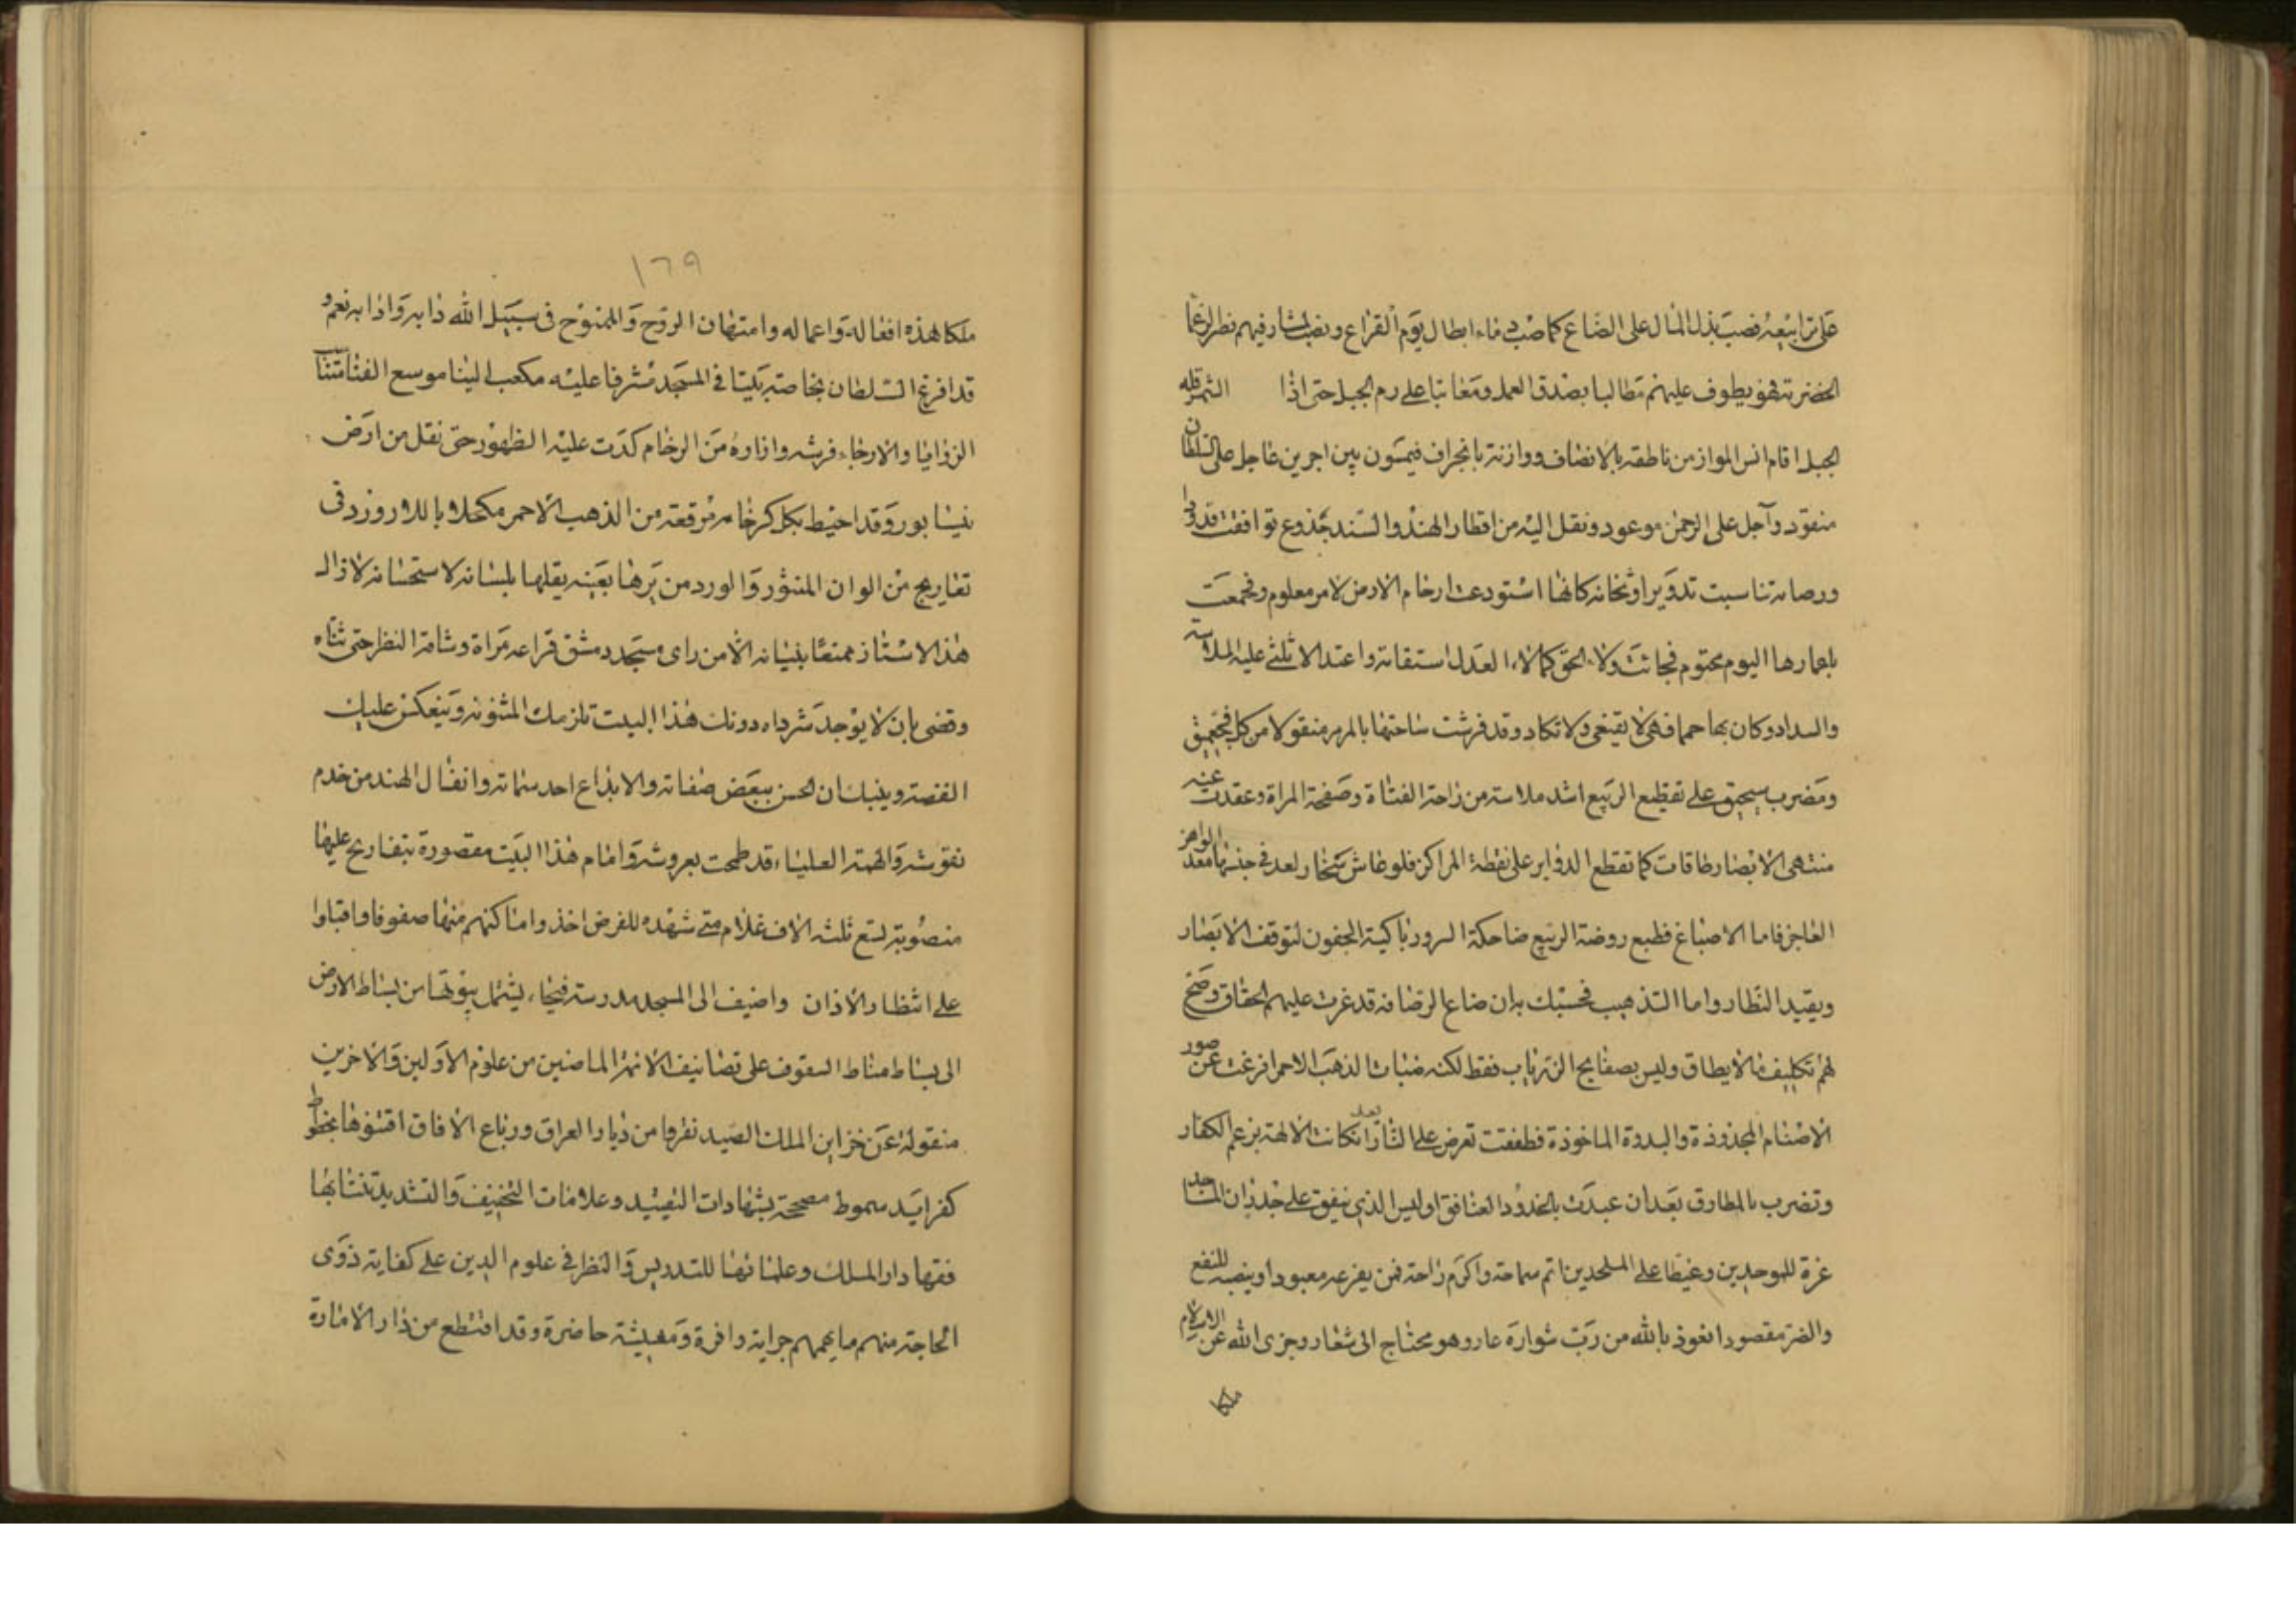 على ترابيعه فصب بذل المال على الصناع كما صب دماء ابطال يوم القراع ونصب لمشارفيهم نظر الزعما
الحضرته فهو يطوف عليهم مطالبا بصدق العمل ومعاتبا على رم الجبل حتى اذا الشمس قله
الجبل اقام انس الموازن ناطقه بالانصاف ووازنه بانحراف فيمسون بين اجرين عاجل على السلطان
منقود وآجل على الرحمن موعود ونقل اليه من اقطار الهند والسند جذوع توافقت قدودا
ورصانه تناسبت تدويرا وثخانه كانها استودعت ارحام الارض لامر معلوم وجمعت
باعمارها اليوم محتوم فجاءت ولاء الحق كمالا، العدل استقامة واعتدالا تلثى عليه الملاسة
والسداد وكان بها حمما فهى لا يقيغى ولا تكاد وقد فرشت ساحتها بالمرمر منقولا من كل فج عميق
ومضرب سحيق على تقطيع الربيع اشد ملاسة من راحة الفتاة وصفحة المراة وعقدت عنه
منتهى الابصار طاقات كما تقطع الدواير على نقطة المراكز فلو عاش سنمار لعد في جنبها معد الواهز
العاجز فاما الاصباغ فطبع روضة الربيع ضاحكة السرور باكية الجفون لتوقف الابصار
ويقيد النظار واما التذهيب فحسبك به ان صناع الرصافه قد غرت عليهم الحقاق وضح
لهم تكليف ما لا يطاق وليس بصفايح الزرياب فقط لكنه ضبات الذهب الاحمر افرغت عن صور
الاصنام المجذوذة والبدوة الماخوذة فطفقت تعرض على النار بعد ان كانت الالهة بزعم الكفار
وتضرب بالمطارق بعد ان عبدت بالخدود العنافق او ليس الذى ينفق على جدران المساجد
غرة للموحدين وغيظا على الملحدين اتم سماحة واكرم راحة فمن يفزعه معبودا وينصبه للنفع
والضر مقصودا نعوذ بالله من رب شواره عار وهو محتاج الى شعار وجزى الله عن الاسلام
ملكا
١٦٩
ملكا هذه افعاله واعماله وامتهان الروح والممنوح فى سبيل الله دابه واذابه نعم و
قد افرغ السلطان بخاصته بيتا فى المسجد مشرفا عليه مكعب البنا موسع الفنا متناسب
الزوايا والارجاء فرشه وازاره من الرخام كدت عليه الظهور حتى نقل من ارض
نيسابور وقد احيط بكل كرخامه مرقعة من الذهب الاحمر مكحلا باللازورد فى
تعاريج من الوان المنثور والورد من يرها بعينه يقلها بلسانه لاستحسانه لا زال
هذا الاستاذ ممتعا ببنيانه الا من راى مسجد دمشق فراعه مراة وشاقه النظر حتى ثناه
وقضى بان لا يوجد شرواه دونك هذا البيت تلزمك المثنويه وينعكس عليك
القضية وينبيك ان الحسن ببعض صفاته والابداع احد سماته وانفال الهند من خدم
نقوشه والهمة العلياء قد طمحت بعروشه وامام هذا البيت مقصورة بتفاريح عليها
منصوبة لتسع ثلثه الاف غلام متى شهده للفرض اخذوا اماكنهم منها صفوفا واقبلوا
على انتظار الاذان واضيف الى المسجد مدرسة فيحاء يشتمل بيوتها من بساط الارض
الى بساط مناط السقوف على تصانيف الائمة الماضين من علوم الاولين والاخرين
منقولة عن خزاين الملك الصيد نقروا من ديار العراق ورباع الافاق اقتنوها بخطوط
كفرايد سموط مصححة بشهادات التقييد وعلامات التخفيف والتشديد تنتابها
فقها دار الملك وعلمائها للتدريس والنظر فى علوم الدين على كفاية ذوى
الحاجة منهم ما يهمهم جراية وافرة ومعيشة حاضرة وقد اقتطع من دار الامارة